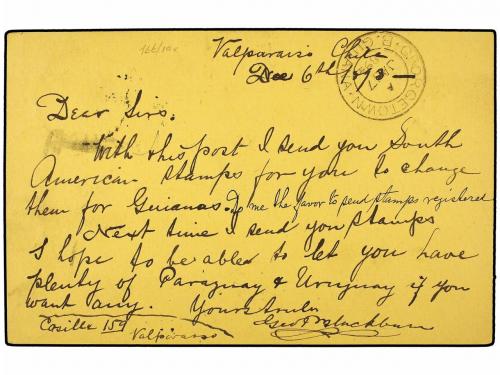 166/10x
Valparaiso Chile
Dec 6th 1893 —
GEORGETOWN
Dear Sirs.
With this post I send you South
American stamps for you to change
them for Guianas. Do me the favor to send stamps registered
Next time I send you stamps
I hope to be abled to let you have
plenty of Paraguay & Uruguay if you
want any. Yours truly
Casilla 159 Geo Blackburn
Valparaiso